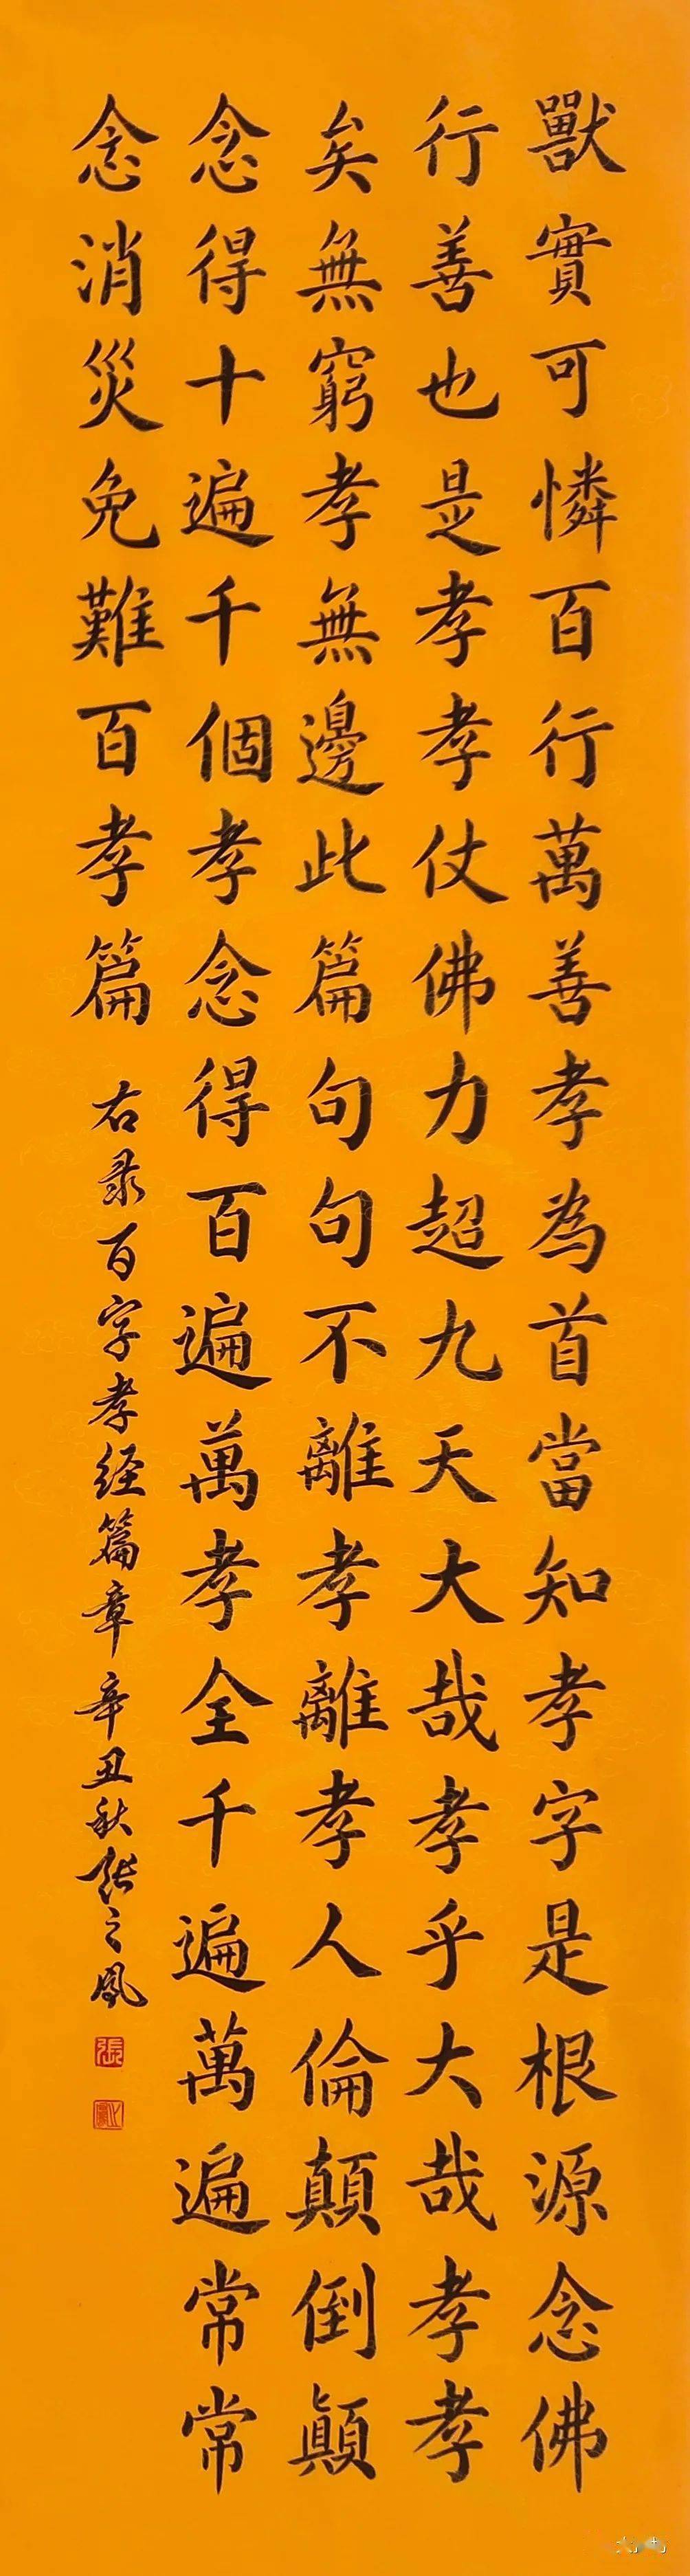 獸實可憐百行萬善孝為首當知孝字是根源念佛
行善也是孝孝仗佛力超九天大哉孝乎大哉孝孝
矣無窮孝無邊此篇句句不離孝離孝人倫顛倒顛
念得十遍千個孝念得百遍萬孝全千遍萬遍常常
念消災免難百孝篇
右录百字孝经篇章辛丑秋张之凤
張